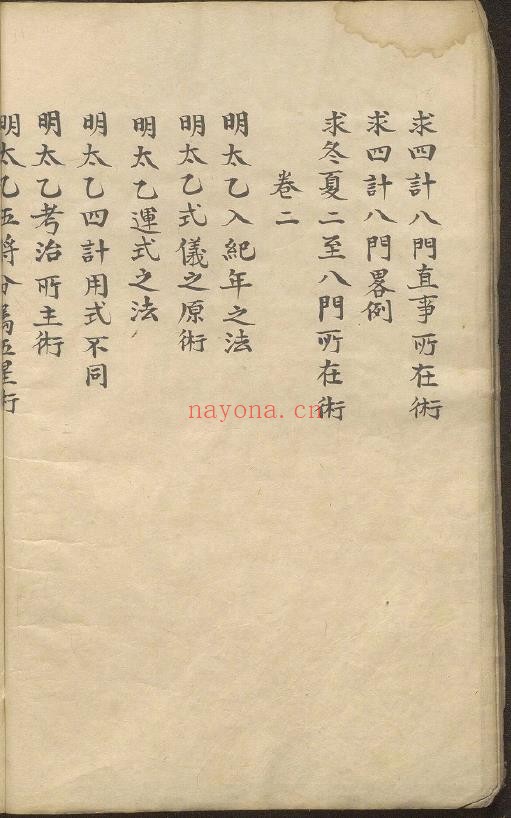 求四計八門直事所在術
求四計八門畧例
求冬夏二至八門所在術
卷二
明太乙入紀年之法
明太乙式儀之原術
明太乙運式之法
明太乙四計用式不同
明太乙考治所主術
明太乙五將分為五星行
nayona.cn